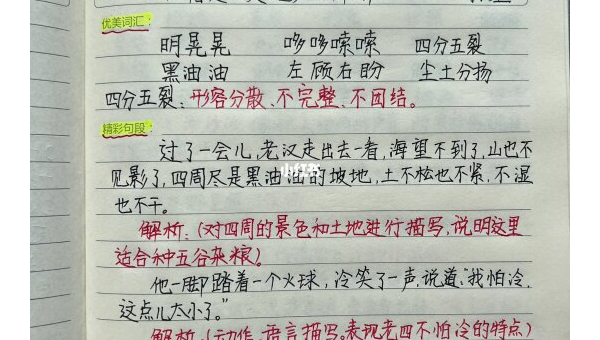 优美词汇:
明晃晃 哆哆嗦嗦 四分五裂
黑油油 左顾右盼 尘土分扬
四分五裂:形容分散、不完整、不团结。
精彩句段:
过了一会儿,老汉走出去一看,海望不到了,山也不
见影了,四周尽是黑油油的坡地,土不松也不紧,不湿
也不干。
解析:(对四周的景色和土地进行描写,说明这里
适合种五谷杂粮)
他一脚踏着一个火球,冷笑了一声,说道:“我怕冷,
这点儿太小了。”
解析:(动作、语言描写。表现老四不怕冷的特点)
小红书